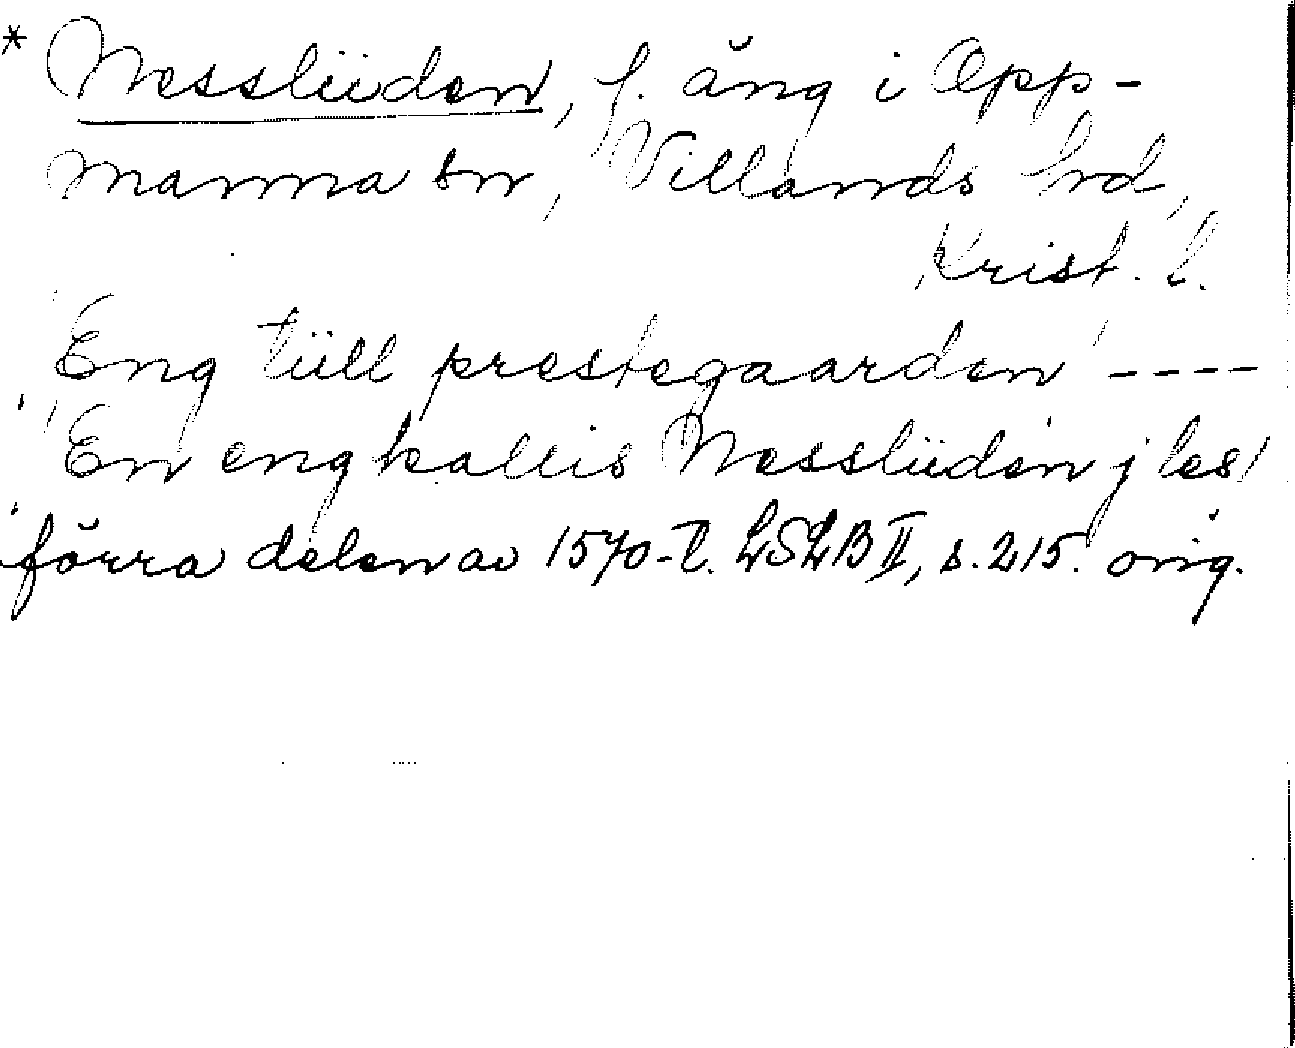 * Nessliiden, f. äng i Opp-
manna sn, Villands hd,
Krist. l.
"Eng tiill prestegaarden" ----
"En eng kallis Nessliiden j les"
förra delen av 1570-t. LSLB II, s. 215. orig.